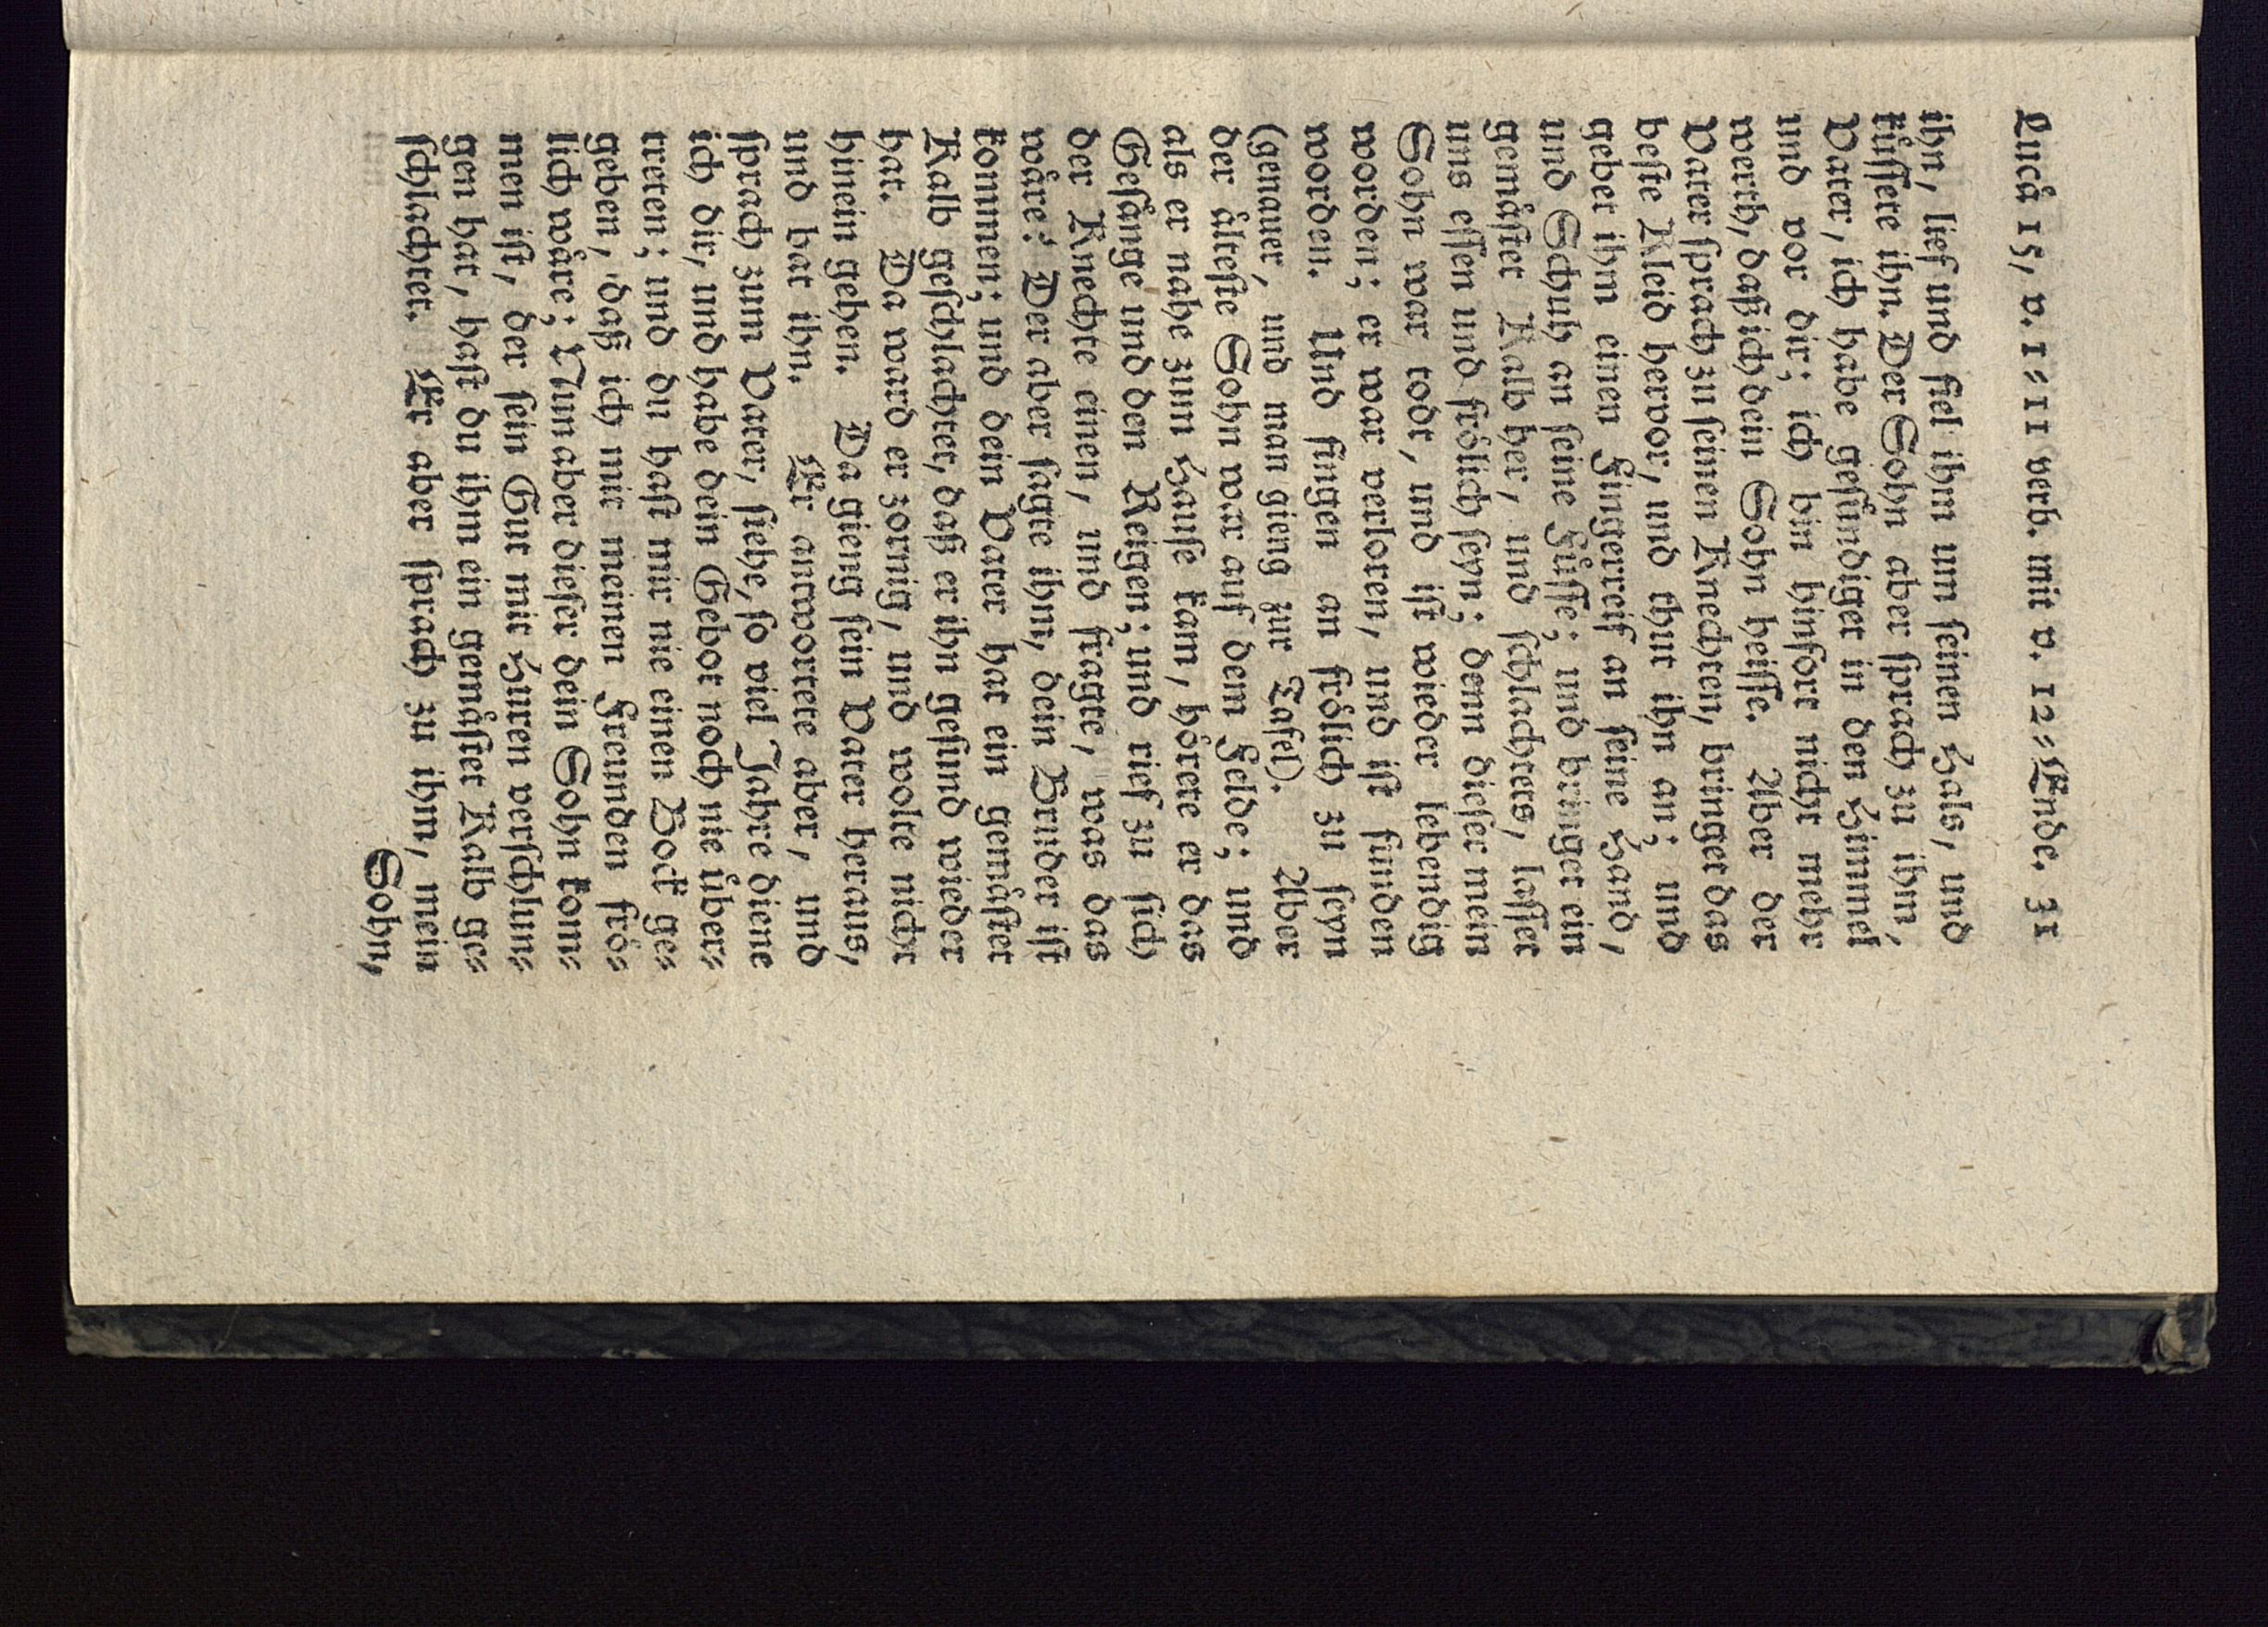 Lucå 15, v. 1⸗11 verb. mit v. 12⸗Ende. 31
ihn, lief und fiel ihm um ſeinen Hals, und
kuͤſſete ihn. Der Sohn aber ſprach zu ihm,
Vater, ich habe geſuͤndiget in den Himmel
und vor dir; ich bin hinfort nicht mehr
werth, daß ich dein Sohn heiſſe. Aber der
Vater ſprach zu ſeinen Knechten, bringet das
beſte Kleid hervor, und thut ihn an; und
gebet ihm einen Fingerreif an ſeine Hand,
und Schuh an ſeine Fuͤſſe; und bringet ein
gemaͤſtet Kalb her, und ſchlachtets, laſſet
uns eſſen und froͤlich ſeyn; denn dieſer mein
Sohn war todt, und iſt wieder lebendig
worden; er war verloren, und iſt funden
worden. Und fingen an froͤlich zu ſeyn
(genauer, und man gieng zur Tafel). Aber
der aͤlteſte Sohn war auf dem Felde; und
als er nahe zum Hauſe kam, hoͤrete er das
Geſaͤnge und den Reigen; und rief zu ſich
der Knechte einen, und fragte, was das
waͤre: Der aber ſagte ihm, dein Bruder iſt
kommen; und dein Vater hat ein gemaͤſtet
Kalb geſchlachtet, daß er ihn geſund wieder
hat. Da ward er zornig, und wolte nicht
hinein gehen. Da gieng ſein Vater heraus,
und bat ihn. Er antwortete aber, und
ſprach zum Vater, ſiehe, ſo viel Jahre diene
ich dir, und habe dein Gebot noch nie uͤber⸗
treten; und du haſt mir nie einen Bock ge⸗
geben, daß ich mit meinen Freunden froͤ⸗
lich waͤre; Nun aber dieſer dein Sohn kom⸗
men iſt, der ſein Gut mit Huren verſchlun⸗
gen hat, haſt du ihm ein gemaͤſtet Kalb ge⸗
ſchlachtet. Er aber ſprach zu ihm, mein
Sohn,